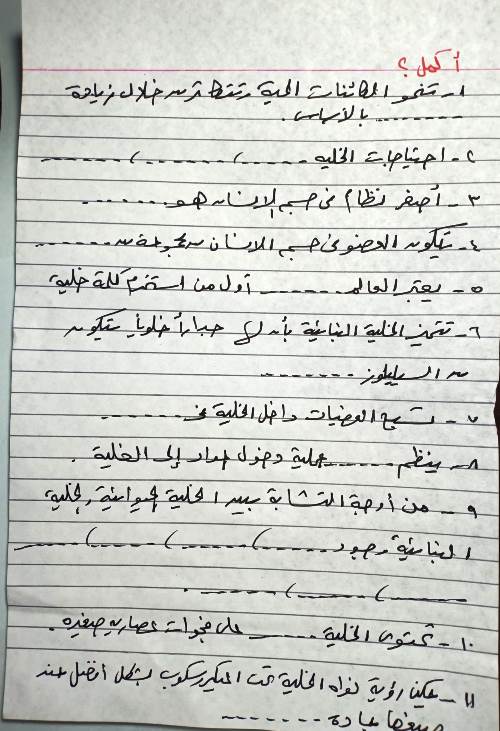 أكمل ؟
١- تنمو الكائنات الحية وتتطور من خلال زيادة
........ بالأساس .
٢- احتياجات الخلية ........ ، ........ ، ........
٣- أصغر نظام فى جسم الإنسان هو ........
٤- يتكون العضو فى جسم الانسان من مجموعة من ........
٥- يعتبر العالم ........ أول من استخدم كلمة خلية
٦- تتميز الخلية النباتية بأن لها جداراً خلوياً يتكون
من السليلوز ........
٧- تسبح العضيات داخل الخلية فى ........
٨- ينظم ........ عملية دخول المواد إلى الخلية .
٩- من أوجة التشابة بين الخلية الحيوانية والخلية
النباتية وجود ........ ، ........ ، ........
........ ، ........ ، ........ .
١٠- تحتوى الخلية ........ على فجوات عصارية صغيرة .
١١- يمكن رؤية نواه الخلية تحت الميكروسكوب بشكل أفضل عند
صبغها بمادة ........